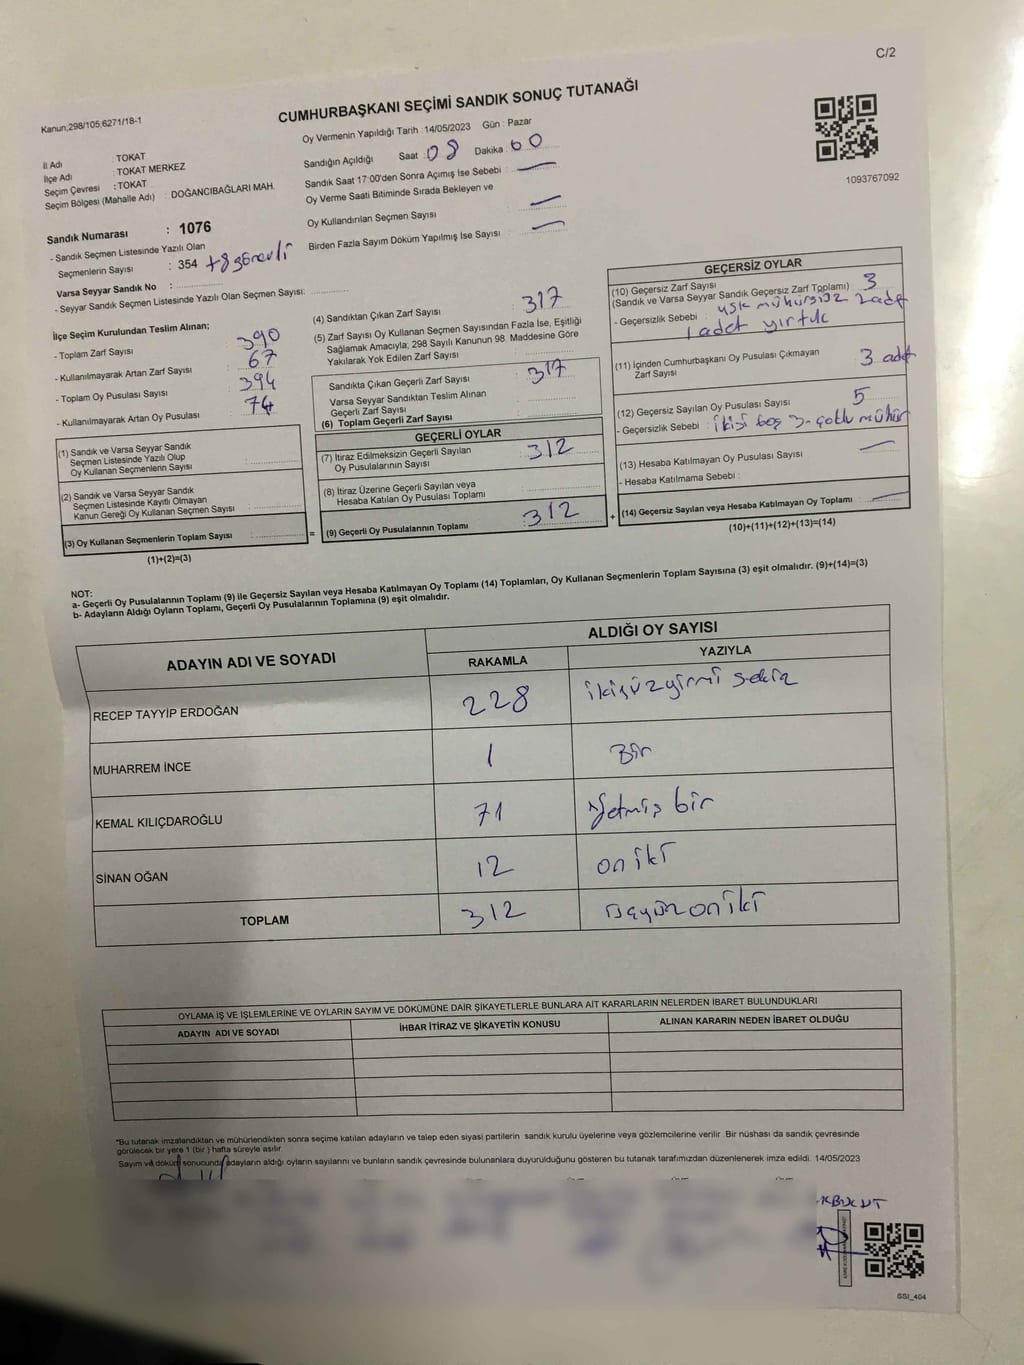 C/2
Kanun;298/105,6271/18-1
CUMHURBAŞKANI SEÇİMİ SANDIK SONUÇ TUTANAĞI
Oy Vermenin Yapıldığı Tarih : 14/05/2023 Gün : Pazar
İl Adı : TOKAT
İlçe Adı : TOKAT MERKEZ
Seçim Çevresi : TOKAT
Seçim Bölgesi (Mahalle Adı) : DOĞANCIBAĞLARI MAH.
Sandığın Açıldığı Saat : 08 Dakika : 00
Sandık Saat 17:00'den Sonra Açılmış İse Sebebi : —
Oy Verme Saati Bitiminde Sırada Bekleyen ve
Oy Kullandırılan Seçmen Sayısı : —
Birden Fazla Sayım Döküm Yapılmış İse Sayısı : —
1093767092
Sandık Numarası : 1076
- Sandık Seçmen Listesinde Yazılı Olan
Seçmenlerin Sayısı : 354 +8 görevli
Varsa Seyyar Sandık No :
- Seyyar Sandık Seçmen Listesinde Yazılı Olan Seçmen Sayısı:
İlçe Seçim Kurulundan Teslim Alınan;
- Toplam Zarf Sayısı : 390
- Kullanılmayarak Artan Zarf Sayısı : 67
- Toplam Oy Pusulası Sayısı : 394
- Kullanılmayarak Artan Oy Pusulası : 74
(1) Sandık ve Varsa Seyyar Sandık
Seçmen Listesinde Yazılı Olup
Oy Kullanan Seçmenlerin Sayısı :
(2) Sandık ve Varsa Seyyar Sandık
Seçmen Listesinde Kayıtlı Olmayan
Kanun Gereği Oy Kullanan Seçmen Sayısı :
(3) Oy Kullanan Seçmenlerin Toplam Sayısı :
(1)+(2)=(3)
(4) Sandıktan Çıkan Zarf Sayısı : 317
(5) Zarf Sayısı Oy Kullanan Seçmen Sayısından Fazla İse, Eşitliği
Sağlamak Amacıyla, 298 Sayılı Kanunun 98. Maddesine Göre
Yakılarak Yok Edilen Zarf Sayısı :
Sandıkta Çıkan Geçerli Zarf Sayısı : 317
Varsa Seyyar Sandıktan Teslim Alınan
Geçerli Zarf Sayısı :
(6) Toplam Geçerli Zarf Sayısı :
GEÇERLİ OYLAR
(7) İtiraz Edilmeksizin Geçerli Sayılan
Oy Pusulalarının Sayısı : 312
(8) İtiraz Üzerine Geçerli Sayılan veya
Hesaba Katılan Oy Pusulası Toplamı :
= (9) Geçerli Oy Pusulalarının Toplamı : 312
GEÇERSİZ OYLAR
(10) Geçersiz Zarf Sayısı
(Sandık ve Varsa Seyyar Sandık Geçersiz Zarf Toplamı) : 3
- Geçersizlik Sebebi : ysk mühürsüz 2 adet
1 adet yırtık
(11) İçinden Cumhurbaşkanı Oy Pusulası Çıkmayan
Zarf Sayısı : 3 adet
(12) Geçersiz Sayılan Oy Pusulası Sayısı : 5
- Geçersizlik Sebebi : ikisi boş 3-çoklu mühür
(13) Hesaba Katılmayan Oy Pusulası Sayısı : —
- Hesaba Katılmama Sebebi :
+ (14) Geçersiz Sayılan veya Hesaba Katılmayan Oy Toplamı : —
(10)+(11)+(12)+(13)=(14)
NOT:
a- Geçerli Oy Pusulalarının Toplamı (9) ile Geçersiz Sayılan veya Hesaba Katılmayan Oy Toplamı (14) Toplamları, Oy Kullanan Seçmenlerin Toplam Sayısına (3) eşit olmalıdır. (9)+(14)=(3)
b- Adayların Aldığı Oyların Toplamı, Geçerli Oy Pusulalarının Toplamına (9) eşit olmalıdır.
ADAYIN ADI VE SOYADI
ALDIĞI OY SAYISI
RAKAMLA YAZIYLA
RECEP TAYYİP ERDOĞAN 228 ikiyüzyirmi sekiz
MUHARREM İNCE 1 Bir
KEMAL KILIÇDAROĞLU 71 Yetmiş bir
SİNAN OĞAN 12 on iki
TOPLAM 312 üçyüz on iki
OYLAMA İŞ VE İŞLEMLERİNE VE OYLARIN SAYIM VE DÖKÜMÜNE DAİR ŞİKAYETLERLE BUNLARA AİT KARARLARIN NELERDEN İBARET BULUNDUKLARI
ADAYIN ADI VE SOYADI İHBAR İTİRAZ VE ŞİKAYETİN KONUSU ALINAN KARARIN NEDEN İBARET OLDUĞU
*Bu tutanak imzalandıktan ve mühürlendikten sonra seçime katılan adayların ve talep eden siyasi partilerin sandık kurulu üyelerine veya gözlemcilerine verilir. Bir nüshası da sandık çevresinde
görülecek bir yere 1 (bir) hafta süreyle asılır.
Sayım ve döküm sonucunda adayların aldığı oyların sayılarını ve bunların sandık çevresinde bulunanlara duyurulduğunu gösteren bu tutanak tarafımızdan düzenlenerek imza edildi. 14/05/2023
SSI_404